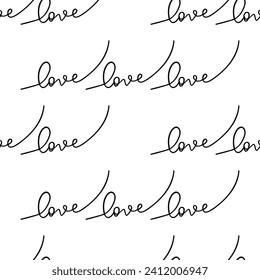 love love
love love love
love love
love love love
shutterstock.com · 2412006947